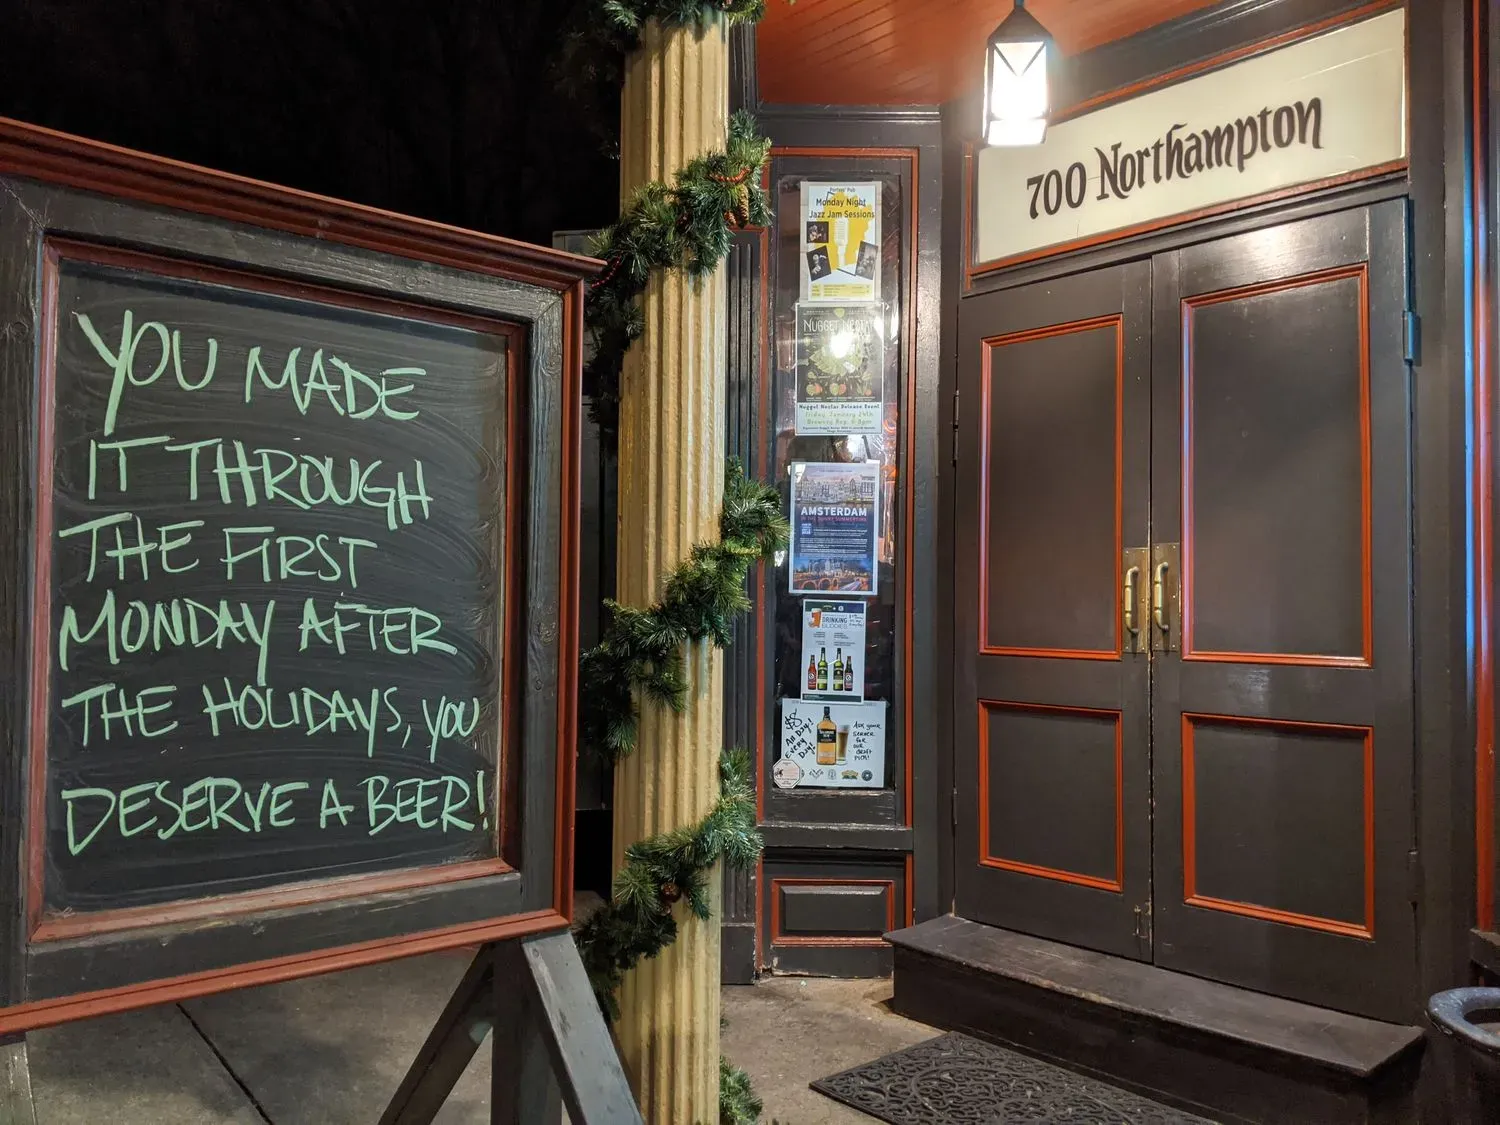 YOU MADE
IT THROUGH
THE FIRST
MONDAY AFTER
THE HOLIDAYS, YOU
DESERVE A BEER!
700 Northampton
Porters' Pub
Monday Night
Jazz Jam Sessions
NUGGET NECTAR
Nugget Nectar Release Event
Friday, January 24th
AMSTERDAM
DRINKING
BUDDIES
$5
All Day!
Every
Day!
ASK YOUR
SERVER
FOR
OUR
DRAFT
PICK!